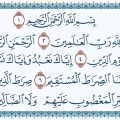 بِسْمِ ٱللَّهِ ٱلرَّحْمَٰنِ ٱلرَّحِيمِ ١
لِلَّهِ رَبِّ ٱلْعَٰلَمِينَ ٢ ٱلرَّحْمَٰنِ ٱلرَّ
ٱلدِّينِ ٤ إِيَّاكَ نَعْبُدُ وَإِيَّا
ٱلصِّرَٰطَ ٱلْمُسْتَقِيمَ ٦ صِرَٰطَ ٱلَّذِ
ٱلْمَغْضُوبِ عَلَيْهِمْ وَلَا ٱلضَّآلِّ